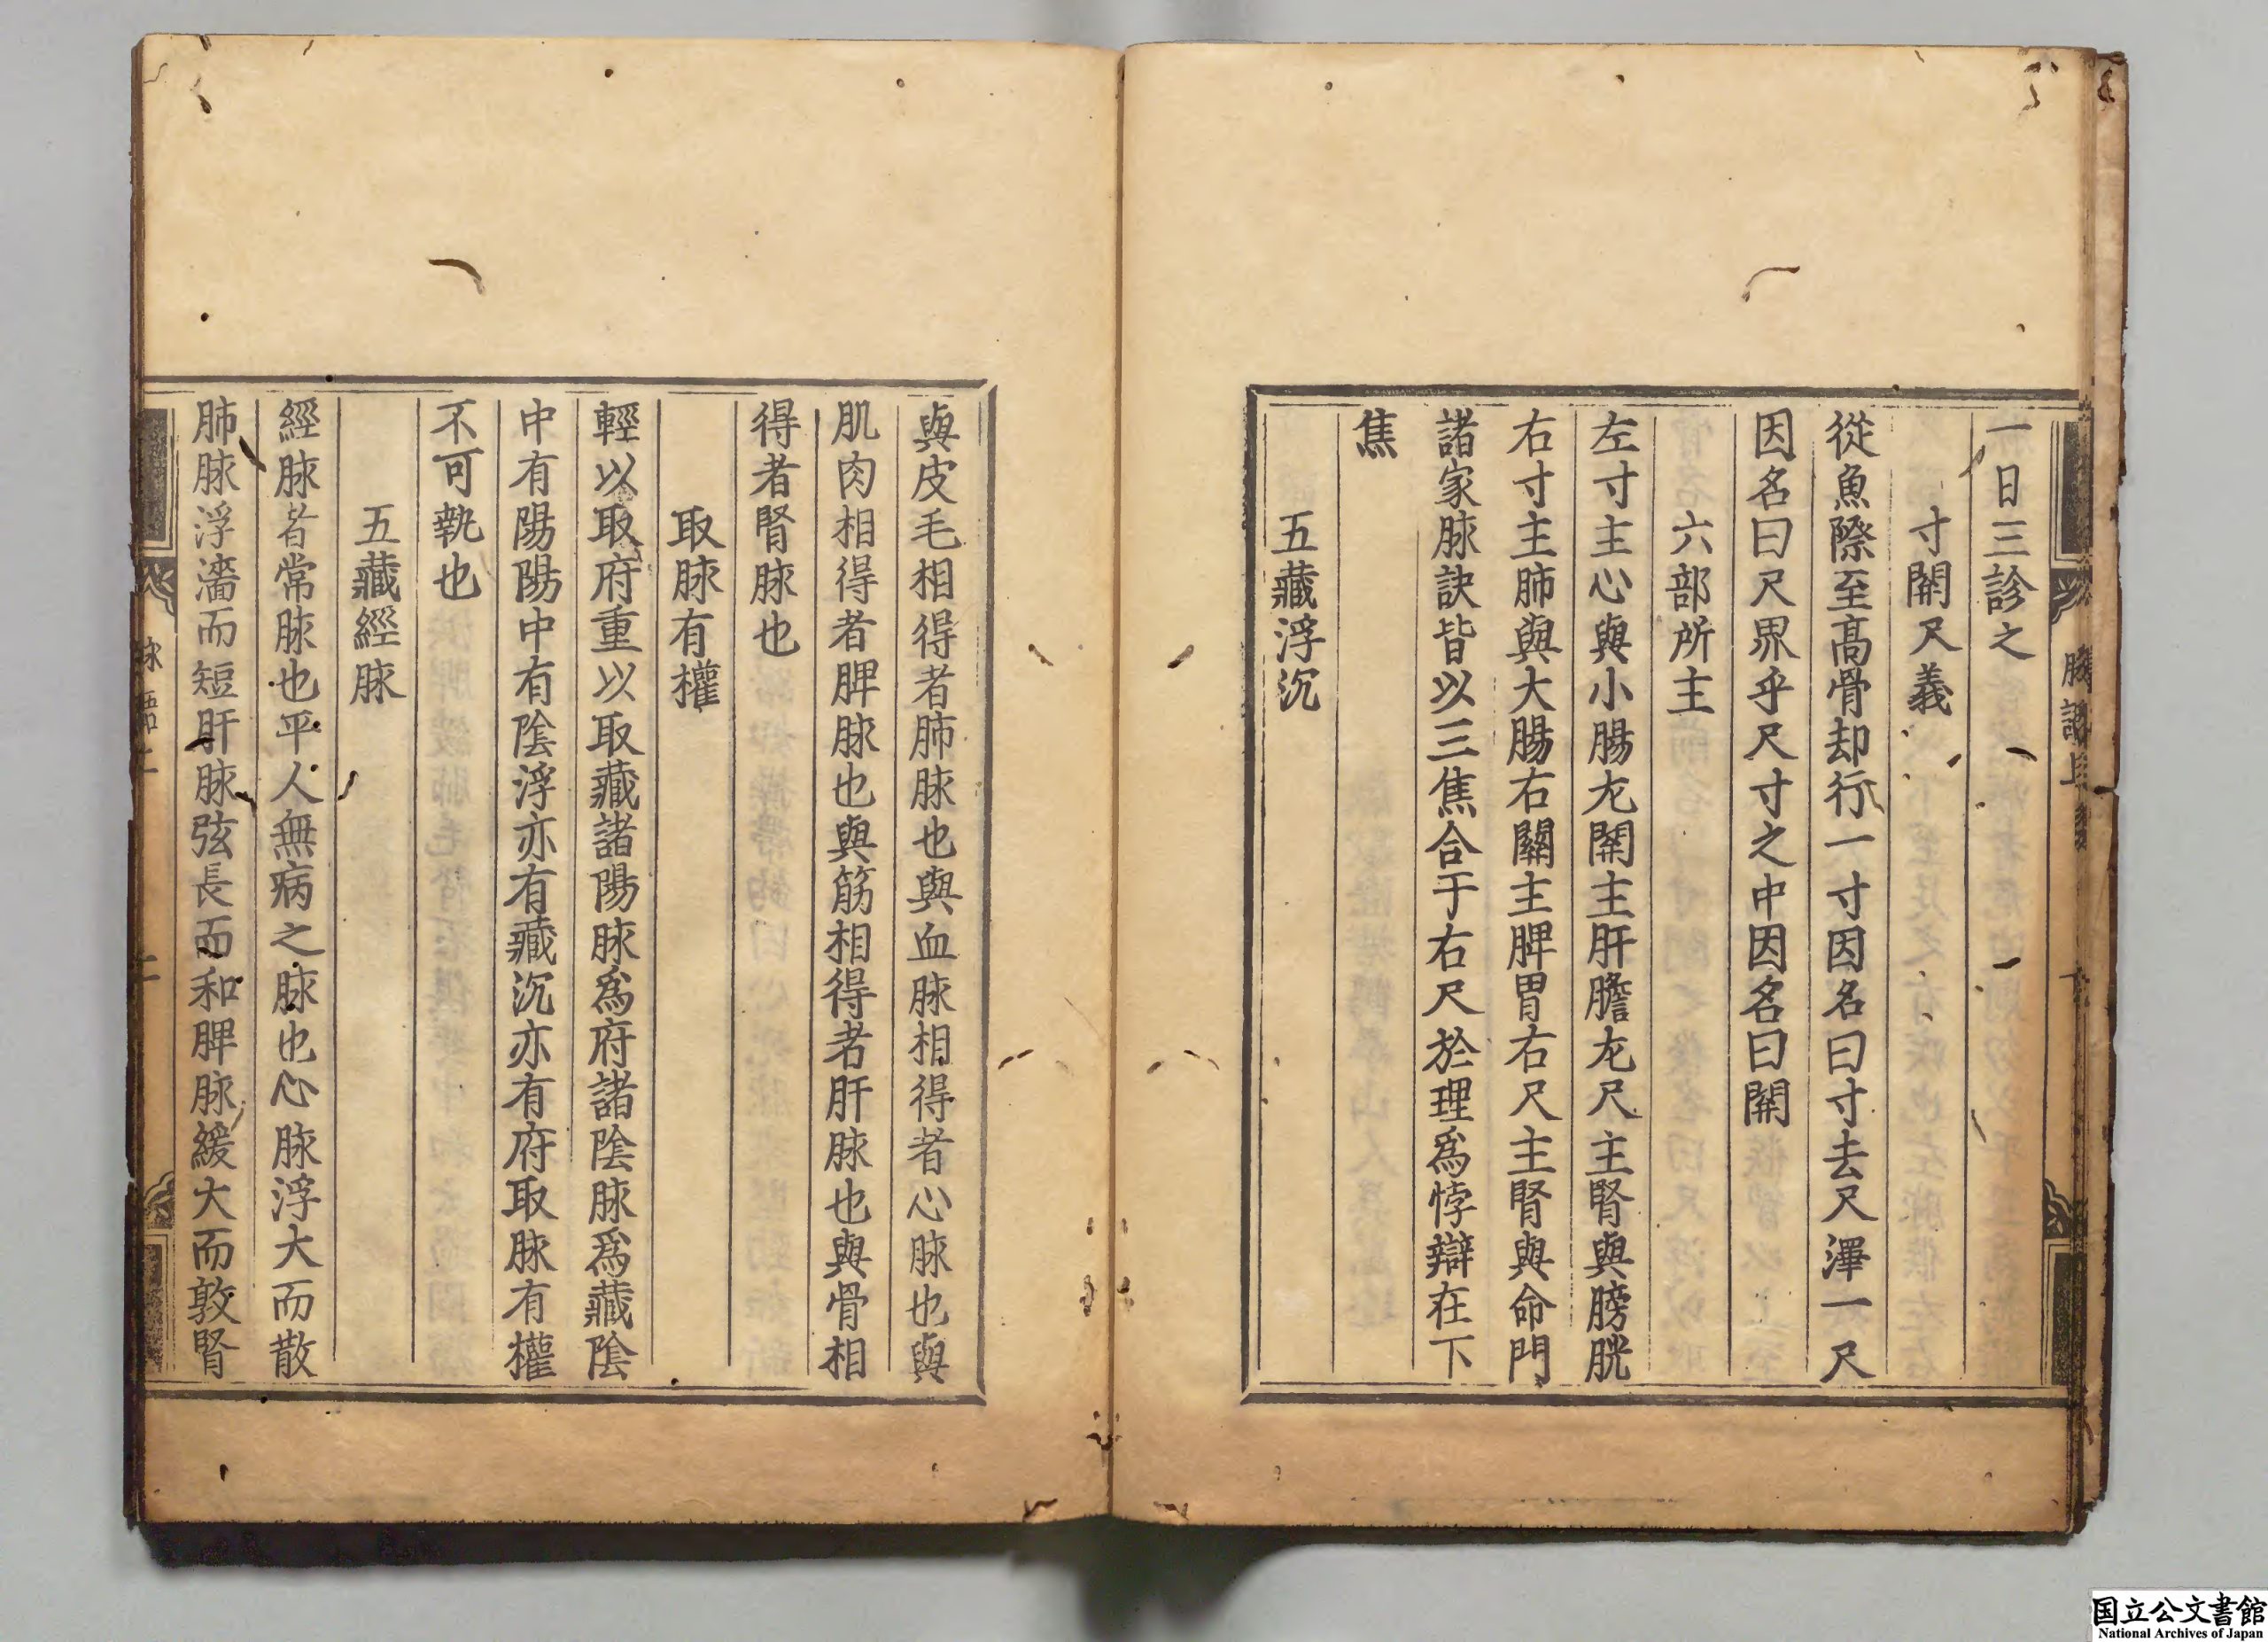 一日三診之
寸關尺義
從魚際至高骨却行一寸因名曰寸去尺澤一尺
因名曰尺界乎尺寸之中因名曰關
六部所主
左寸主心與小腸左關主肝膽左尺主腎與膀胱
右寸主肺與大腸右關主脾胃右尺主腎與命門
諸家脉訣皆以三焦合于右尺於理爲悖辯在下
焦
五藏浮沉
與皮毛相得者肺脉也與血脉相得者心脉也與
肌肉相得者脾脉也與筋相得者肝脉也與骨相
得者腎脉也
取脉有權
輕以取府重以取藏諸陽脉爲府諸陰脉爲藏陰
中有陽陽中有陰浮亦有藏沉亦有府取脉有權
不可執也
五藏經脉
經脉者常脉也平人無病之脉也心脉浮大而散
肺脉浮濇而短肝脉弦長而和脾脉緩大而敦腎
国立公文書館
National Archives of Japan